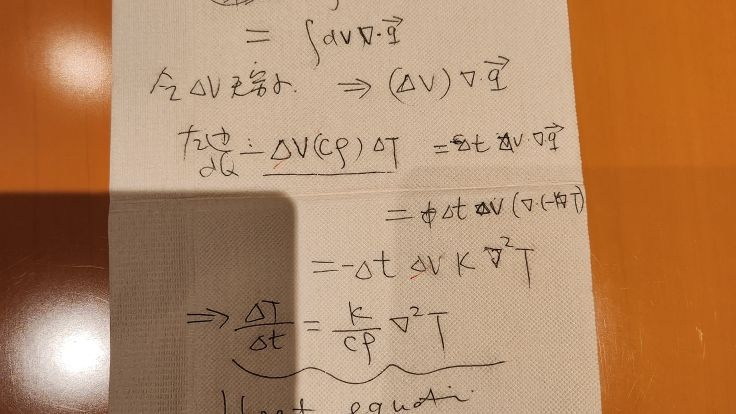 = ∫dV ∇·q⃗
令 ΔV 无穷小 ⇒ (ΔV) ∇·q⃗
dQ = ΔV(Cρ) ΔT = -Δt ΔV·∇q⃗
= Δt ΔV (∇·(-K∇T)
= -Δt ΔV K ∇²T
⇒ ΔT/Δt = K/Cρ ∇²T
Heat equation